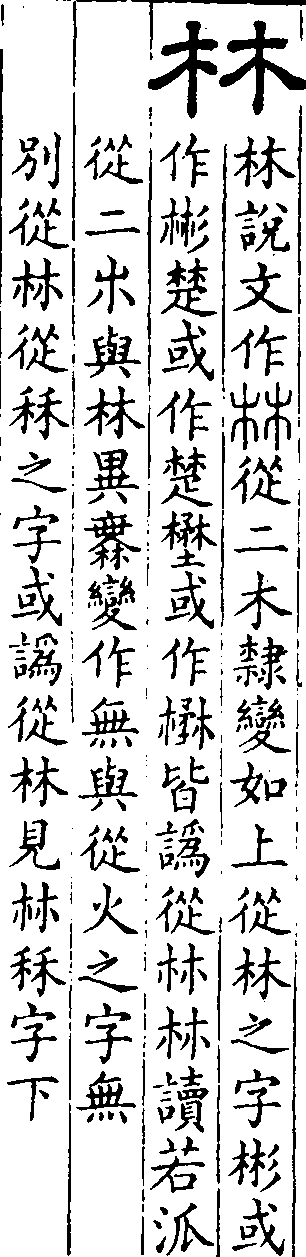 林
林說文作林從二木隸變如上從林之字彬或
作彬楚或作楚壄或作皆譌從𣏟𣏟讀若派
從二𣎳與林異𣞤變作無與從火之字無
別從𣏟從秝之字或譌從林見𣏟秝字下